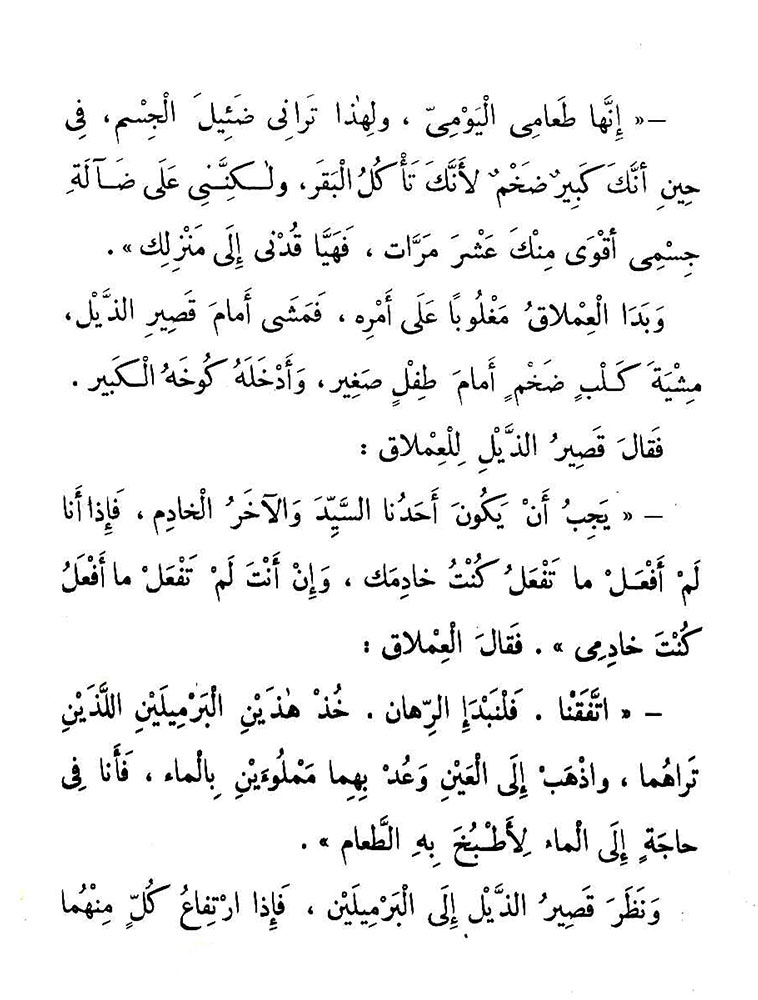 –« إِنَّها طَعامِى الْيَوْمِىّ ، ولِهٰذا تَرانِى ضَئِيلَ الْجِسْم ، فِى
حِينِ أنَّكَ كَبِيرٌ ضَخْمٌ لأَنَّكَ تَأْكُلُ الْبَقَر ، ولٰـكِنَّنِى عَلَى ضَـآلَةِ
جِسْمِى أقْوَى مِنْكَ عَشْرَ مَرَّات ، فَهَيَّا قُدْنِى إِلَى مَنْزِلِك » .
وَبَدَا الْعِمْلاقُ مَغْلُوبًا عَلَى أَمْرِه ، فَمَشَى أَمامَ قَصِيرِ الذَّيْل ،
مِشْيَةَ كَـلْبٍ ضَخْمٍ أَمامَ طِفْلٍ صَغِير ، وَأَدْخَلَهُ كُوخَهُ الْـكَبِير .
فَقالَ قَصِيرُ الذَّيْلِ لِلْعِمْلاق :
– « يَجِبُ أَنْ يَكُونَ أَحَدُنا السَّيِّدَ وَالآخَرُ الْخادِم ، فَإِذا أَنا
لَمْ أَفْعَـلْ ما تَفْعَلُ كُنْتُ خادِمَك ، وَإِنْ أَنْتَ لَمْ تَفْعَلْ ما أَفْعَلُ
كُنْتَ خادِمِى » . فَقالَ الْعِمْلاق :
– « اتَّفَقْنا . فَلْنَبْدَإِ الرِّهان . خُذْ هٰذَيْنِ الْبَرْمِيلَيْنِ اللَّذَيْنِ
تَراهُما ، واذْهَبْ إِلَى الْعَيْنِ وَعُدْ بِهِما مَمْلُوءَيْنِ بِالْماء ، فَأَنا فِى
حاجَةٍ إِلَى الْماء لِأَطْـبُخَ بِهِ الطَّعام » .
وَنَظَرَ قَصِيرُ الذَّيْل إِلَى الْبَرْمِيلَيْن ، فَإِذا ارْتِفاعُ كُلٍّ مِنْهُما